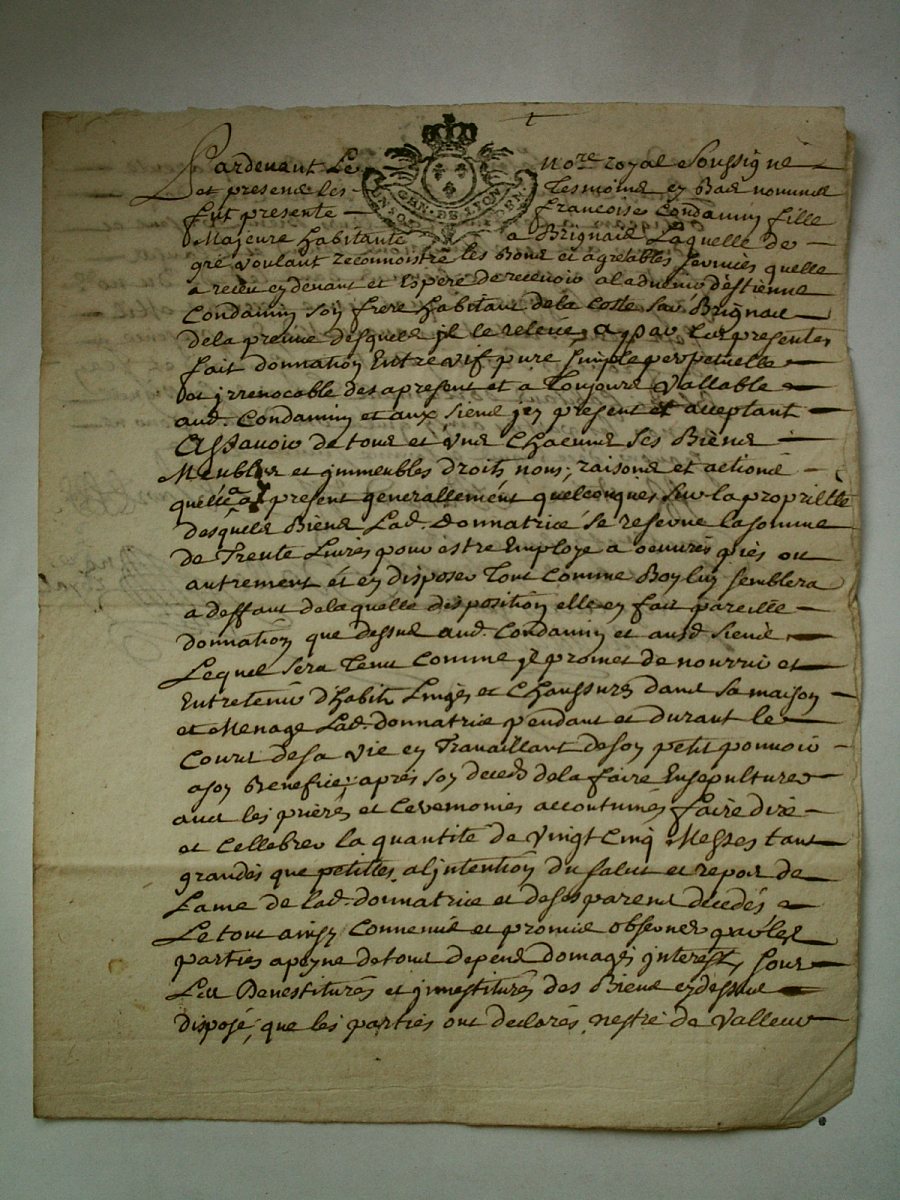 Pardevant Le No.re royal Soussigné
et presens les Tesmoins ey Bas nommés
fut presente francoise Condamin fille
GEN. DE LYON
Majeure habitante a Brignais Laquelle de
gré voulant reconnoistre les Bons et agreables services quelle
a receu cydevant et Espere de recevoir aladvenir d'estienne
Condamin Son frere habitant dela Coste Sur Brignais
dela preuve desquels jl le releve, a par Les presentes
fait donnation Entre vif pure simple perpetuelle
et jrrevocable des apresent et a Toujours Vallable
aud. Condamin et aux siens jcy present et acceptant
Assavoir de tous et Uns Chacuns Ses Biens
Meubles et jmmeubles droits noms, raisons et actions
quelle a present generallement quelconques Sur la proprietté
desquels Biens Lad. donnatrice se reserve la somme
de Trente Livres pour estre Employé a oeuvres pies ou
autrement et en disposer Tout Comme Bon luy semblera
a deffaut delaquelle disposition elle en fait pareille
donnation que dessus aud. Condamin et ausd. siens
Lequel sera Tenu Comme jl promet de nourrir et
Entretenir d'habits Linges et Chaussures dans sa maison
et Menage Lad. donnatrice pendant et durant le
Cours desa vie en Travaillant deson petit pouvoir
a son Benefice, apres son deceds dela faire Ensepulturer
avec les prieres et Ceremonies accoutumés, faire dire
et Cellebrer la quantité de Vingt Cinq Messes tant
grandes que petites aljntention du salut et repos de
Lame de lad. donnatrice et de ses parens decedés
Le tout ainsy Convenus et promis observer par les
parties apeyne de tous depens domages jnterests, sous
Les Devestitures et jnvestitures des Biens cydessus
disposé, que les parties ont declarés nestre de Valleur